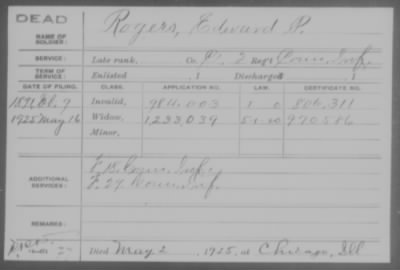 DEAD
NAME OF SOLDIER: Rogers, Edward P.
SERVICE: Late rank, Co. 2 Reg't Conn. Inf.
TERM OF SERVICE: Enlisted , 1 Discharged , 1
DATE OF FILING. CLASS. APPLICATION NO. LAW. CERTIFICATE NO.
1891 7 Invalid, 984,003 806,311
1925 May 16 Widow, 1,233,039 970586
Minor,
ADDITIONAL SERVICES: Conn. Inf.
F. 27 Conn. Inf.
REMARKS:
Died May 2 , 1925, at Chicago, Ill